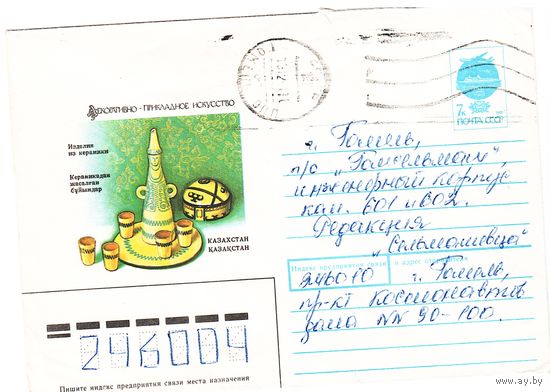 ДЕКОРАТИВНО - ПРИКЛАДНОЕ ИСКУССТВО
Изделия
из керамики
Керамикадан
жасалған
бұйымдар
КАЗАХСТАН
ҚАЗАҚСТАН
7к
ПОЧТА СССР
г. Гомель,
п/о „Гомсельмаш",
инженерный корпус,
ком. 601 и 602.
Редакция
„Сельмашевец"
Индекс предприятия связи и адрес
246010 г. Гомель,
пр-кт Космонавтов
дома NN 90-100.
246004
Пишите индекс предприятия связи места назначения
www.ay.by